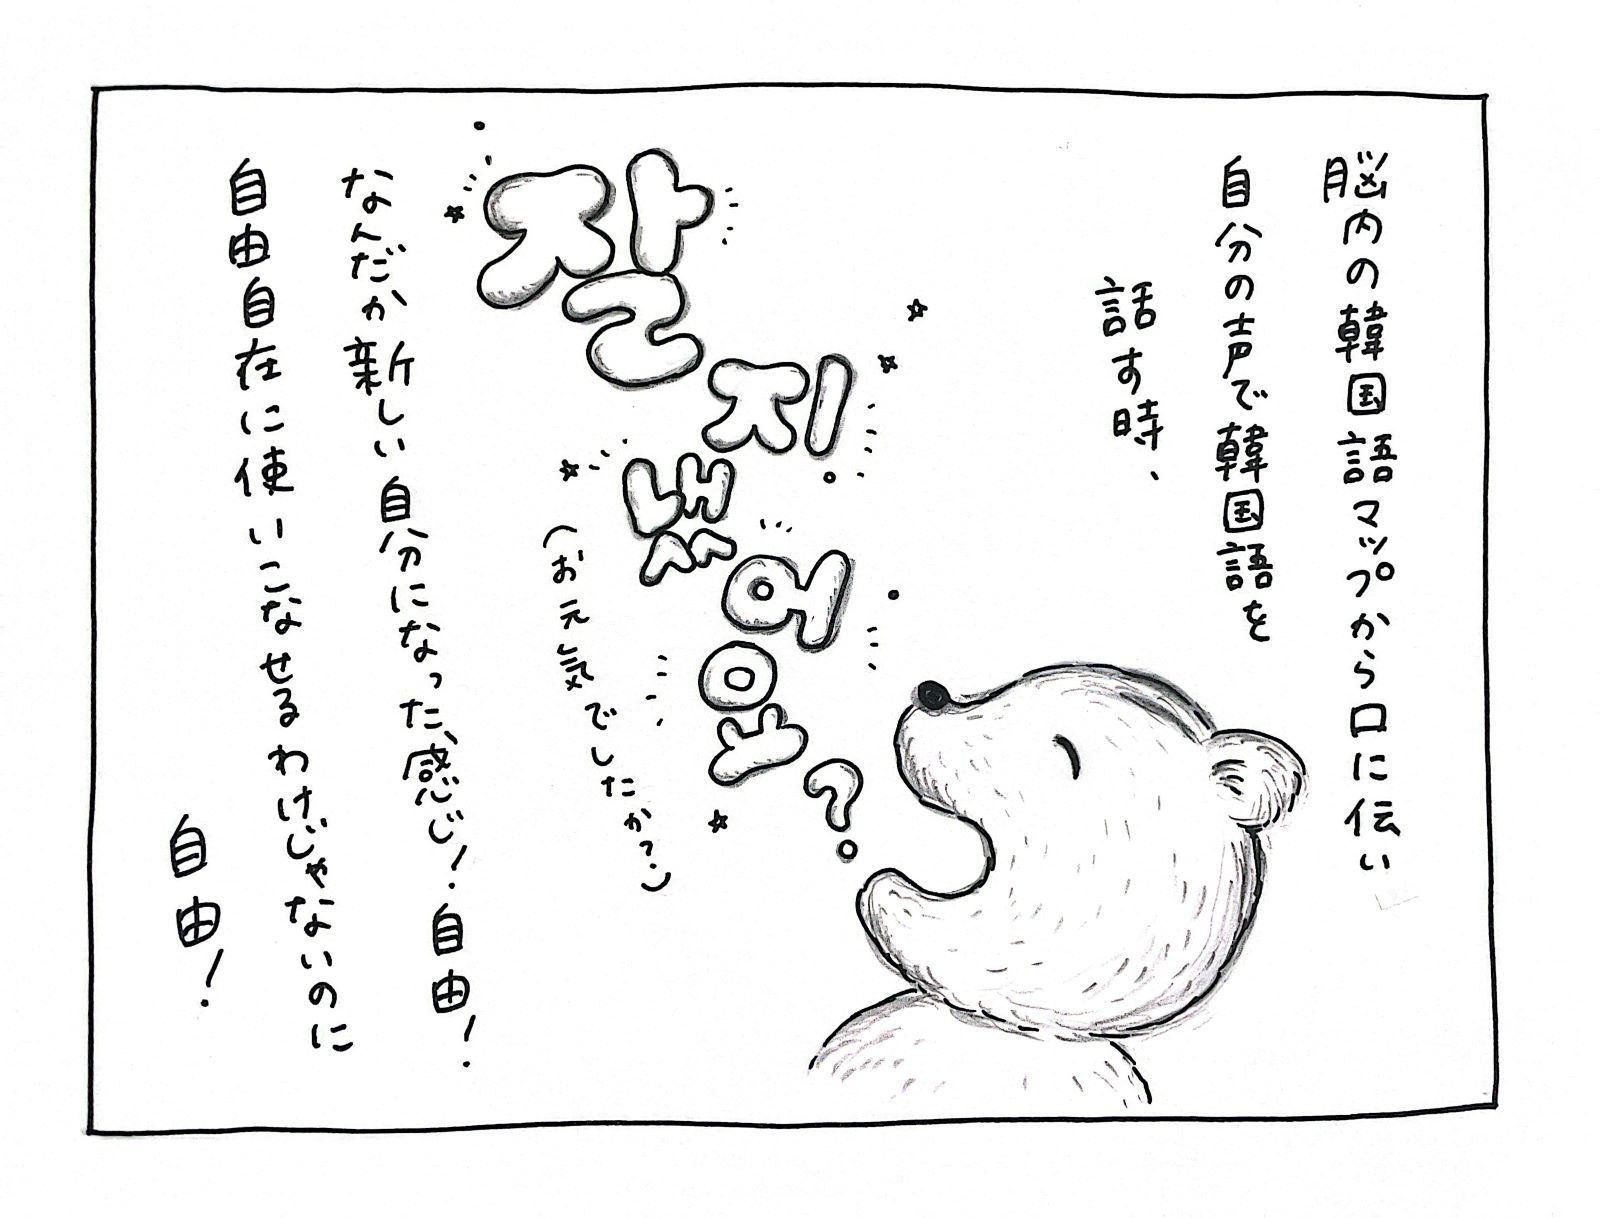 脳内の韓国語マップから口に伝い
自分の声で韓国語を
話す時、
잘 지냈어요?
(お元気でしたか?)
なんだか新しい自分になった、感じ!自由!
自由自在に使いこなせるわけじゃないのに
自由!